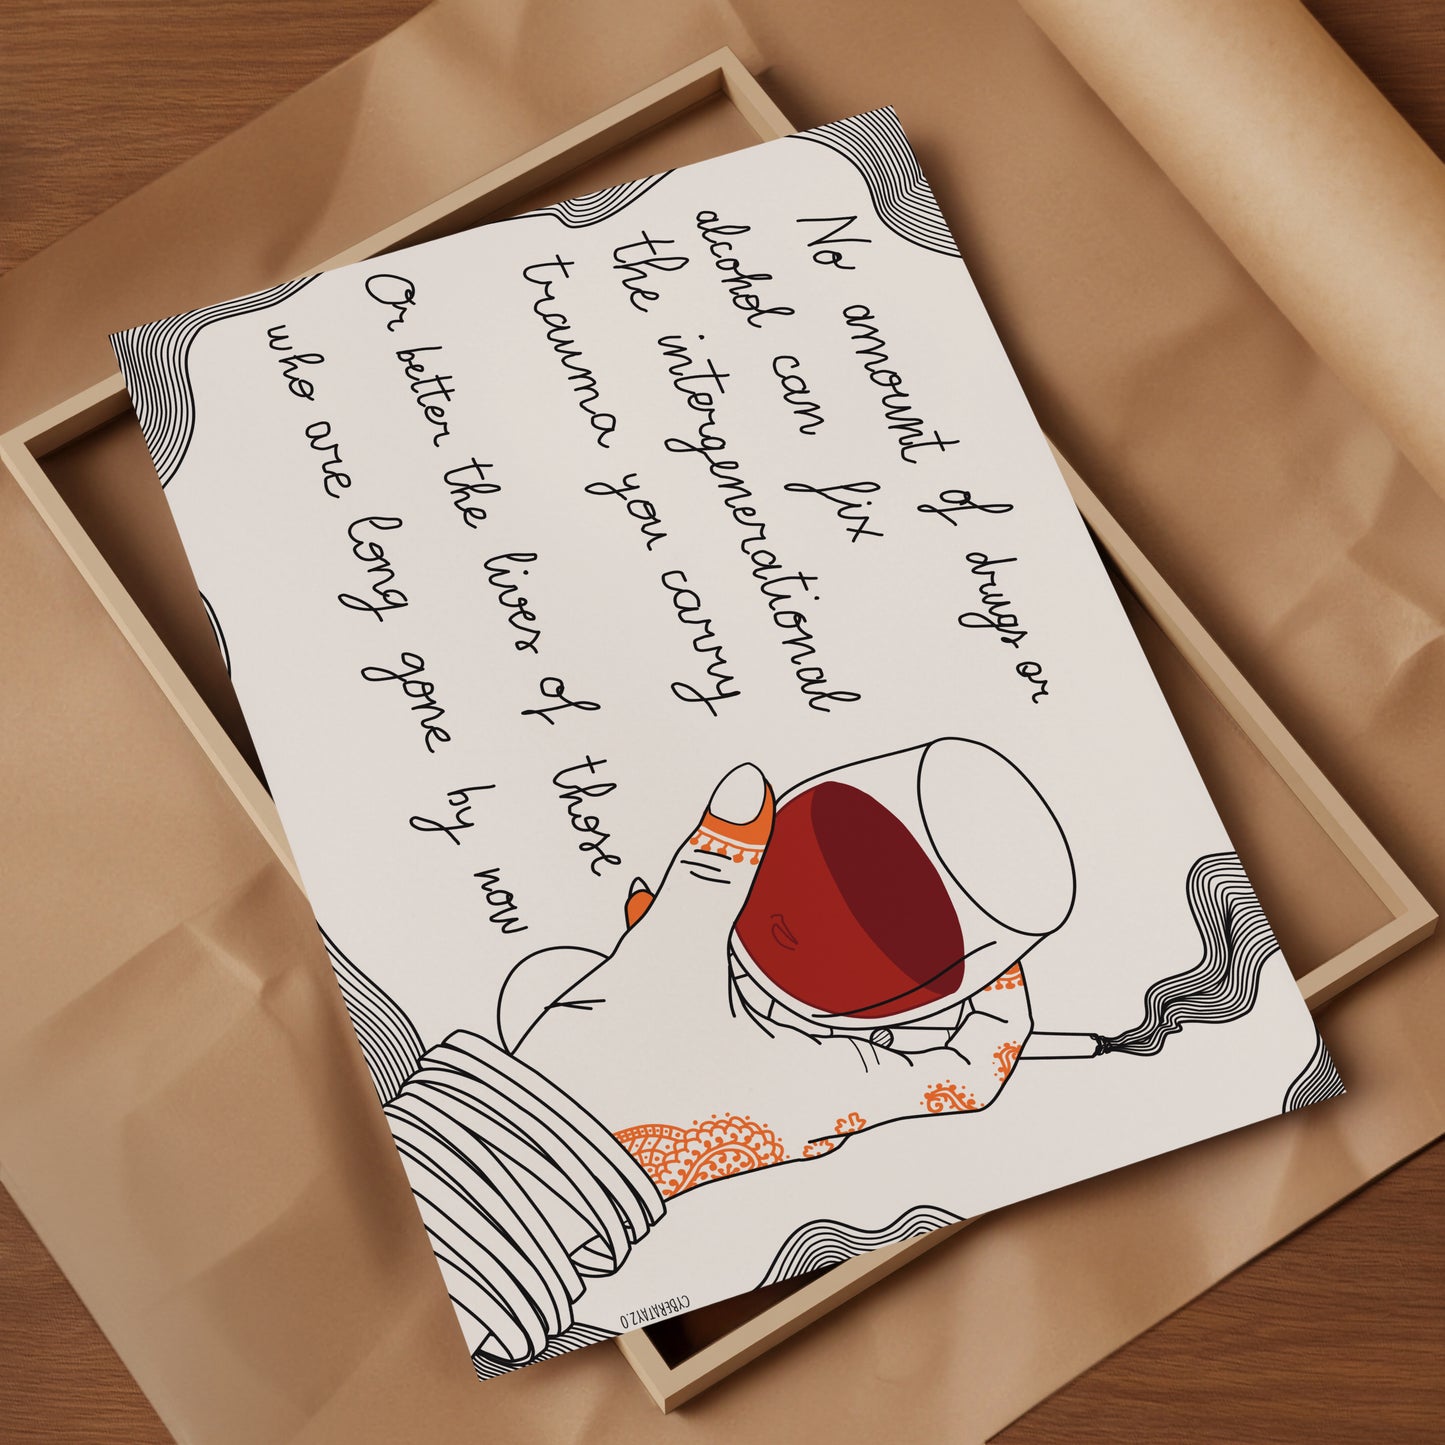 No amount of drugs or
alcohol can fix
the intergenerational
trauma you carry
Or better the lives of those
who are long gone by now
CYBERATAYZ.O